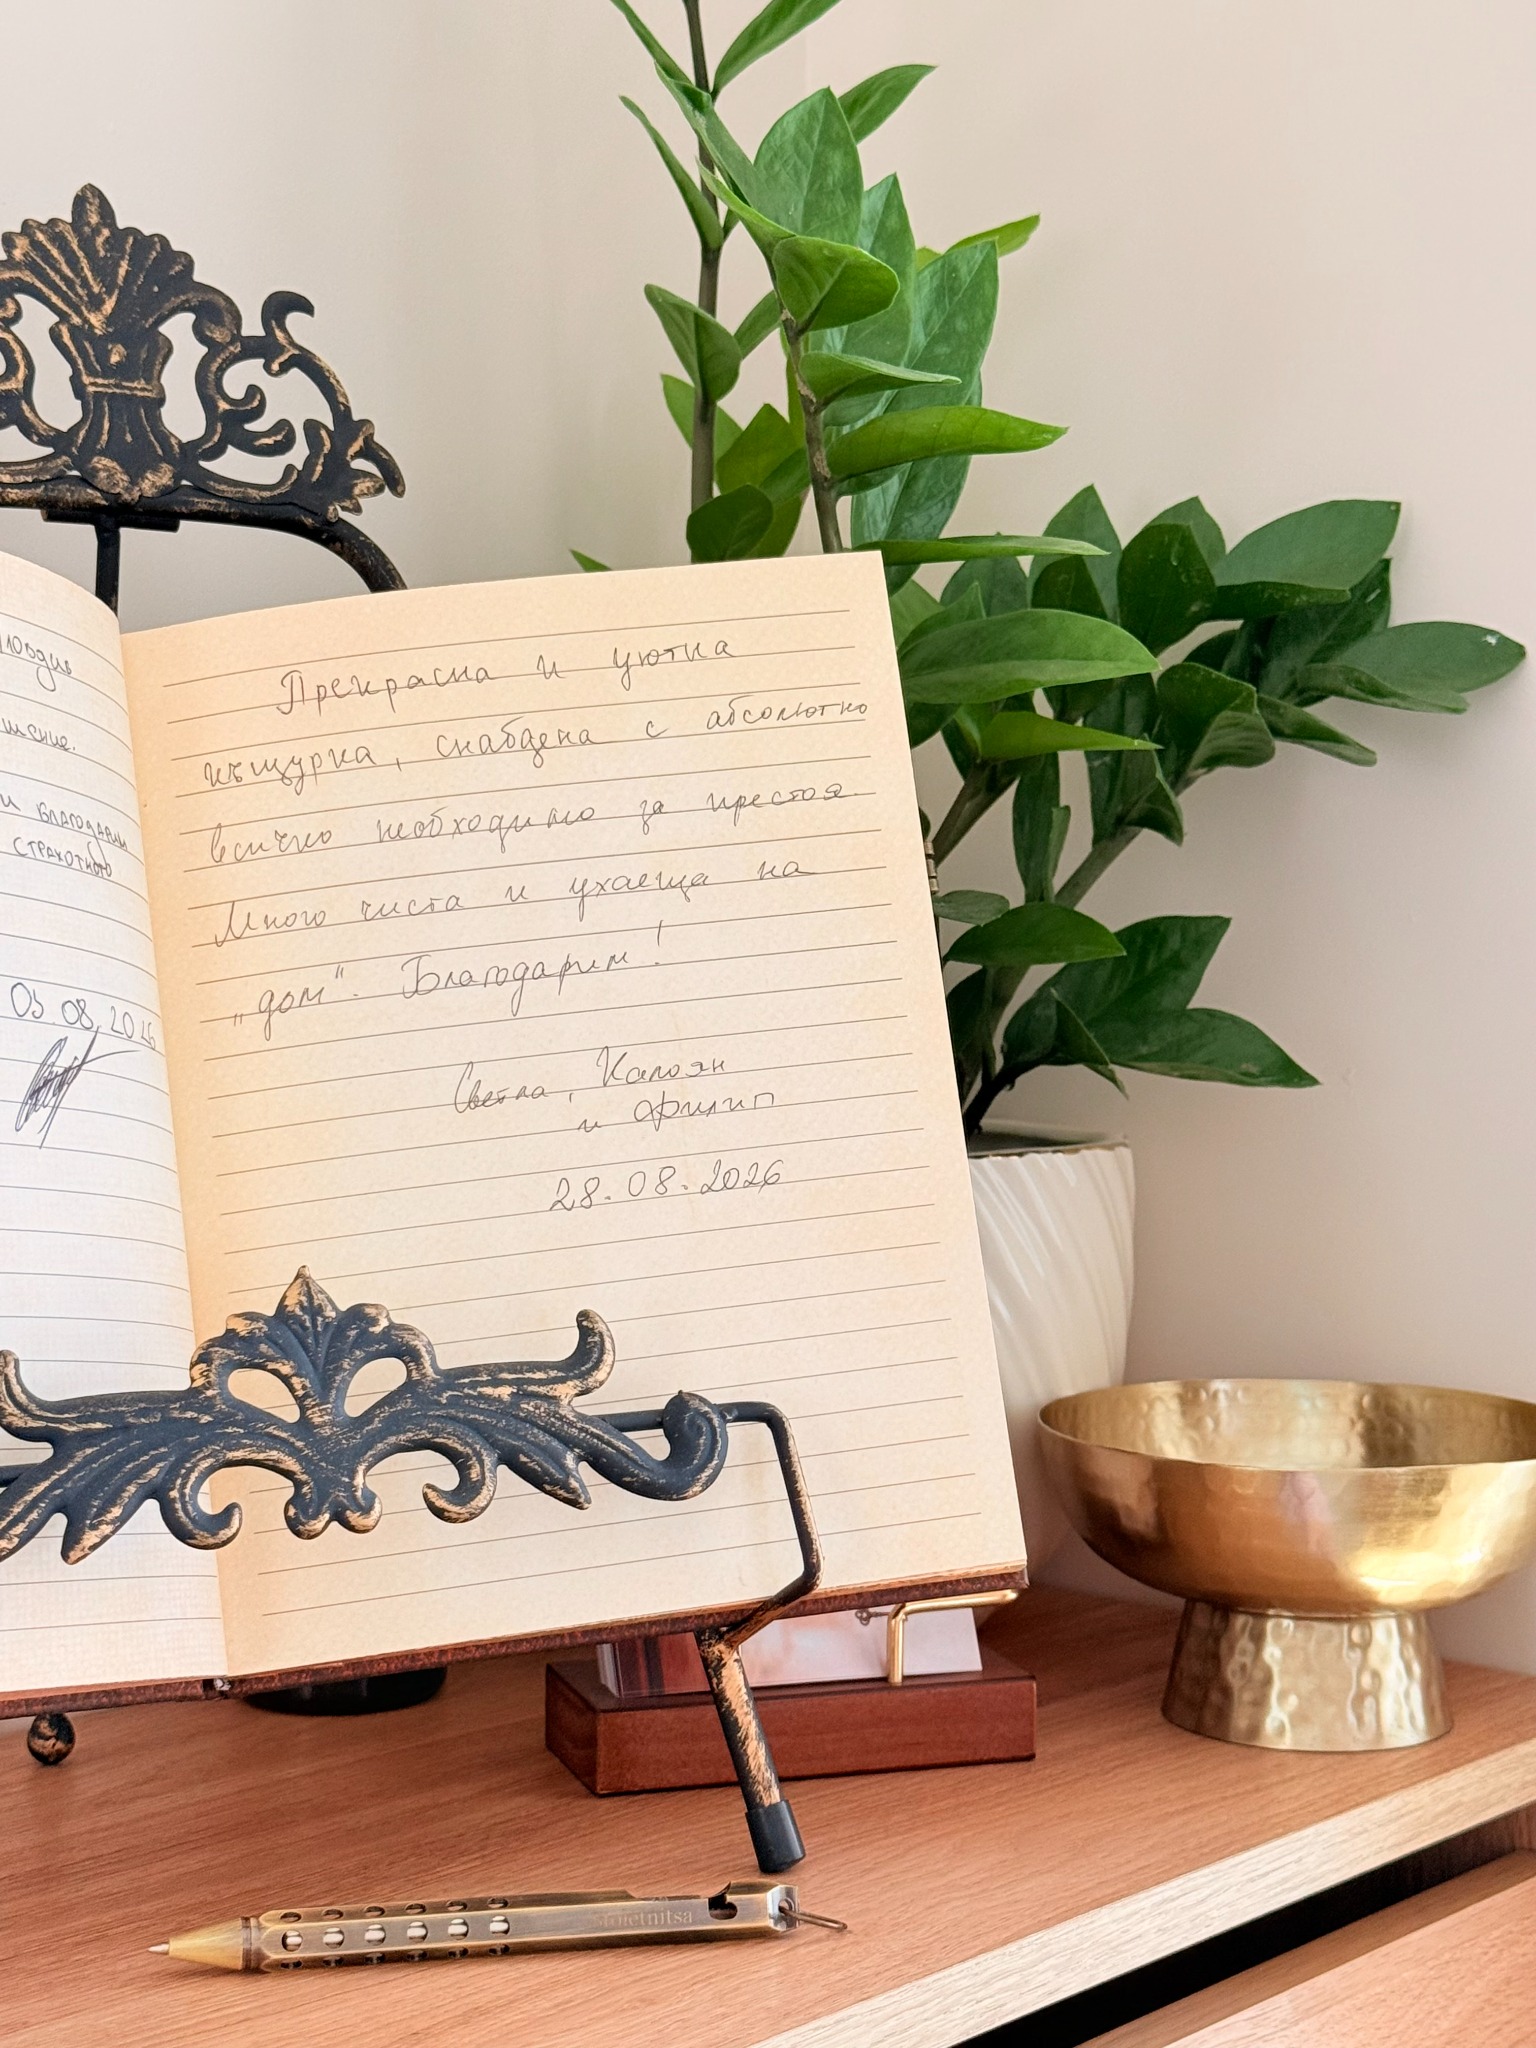 шение.
и благодарим
страхотното
03.08.2026
Прекрасна и уютна
къщурка, снабдена с абсолютно
всичко необходимо за престоя.
Много чиста и ухаеща на
„дом". Благодарим!
Светла, Калоян
и Филип
28.08.2026
Stoletnitsa